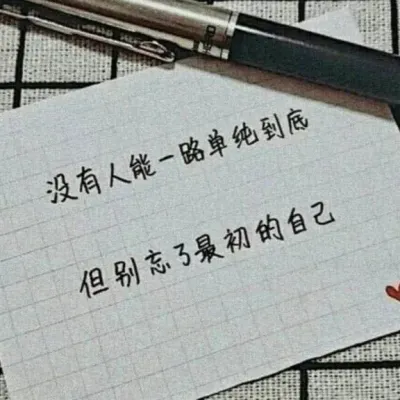 没有人能一路单纯到底
但别忘了最初的自己